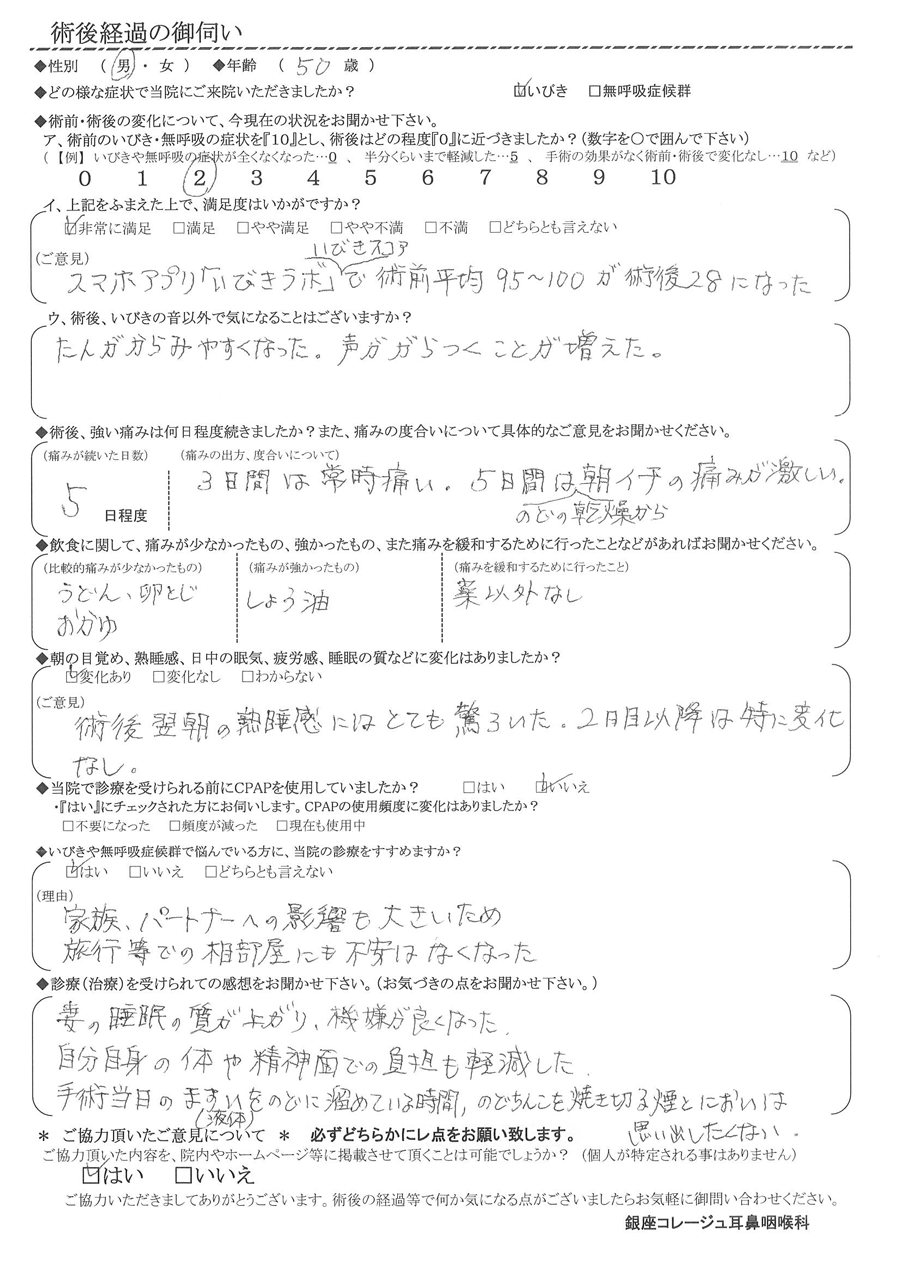 術後経過の御伺い
◆性別 （ 男 ・ 女 ） ◆年齢 （ 50 歳 ）
◆どの様な症状で当院にご来院いただきましたか？ ☑いびき □無呼吸症候群
◆術前・術後の変化について、今現在の状況をお聞かせ下さい。
ア、術前のいびき・無呼吸の症状を『10』とし、術後はどの程度『0』に近づきましたか？(数字を○で囲んで下さい)
（【例】 いびきや無呼吸の症状が全くなくなった…0 、 半分くらいまで軽減した…5 、 手術の効果がなく術前・術後で変化なし…10 など）
0 1 2 3 4 5 6 7 8 9 10
イ、上記をふまえた上で、満足度はいかがですか？
☑非常に満足 □満足 □やや満足 □やや不満 □不満 □どちらとも言えない
いびきスコア
(ご意見)
スマホアプリ「いびきラボ」で術前平均95～100が術後28になった
ウ、術後、いびきの音以外で気になることはございますか？
たんがからみやすくなった。声ががらつくことが増えた。
◆術後、強い痛みは何日程度続きましたか？また、痛みの度合いについて具体的なご意見をお聞かせください。
(痛みが続いた日数) (痛みの出方、度合いについて)
3日間は常時痛い。5日間は朝イチの痛みが激しい。
5 日程度 のどの乾燥から
◆飲食に関して、痛みが少なかったもの、強かったもの、また痛みを緩和するために行ったことなどがあればお聞かせください。
(比較的痛みが少なかったもの) (痛みが強かったもの) (痛みを緩和するために行ったこと)
うどん、卵とじ しょう油 薬以外なし
おかゆ
◆朝の目覚め、熟睡感、日中の眠気、疲労感、睡眠の質などに変化はありましたか？
☑変化あり □変化なし □わからない
(ご意見)
術後翌朝の熟睡感にはとても驚ろいた。2日目以降は特に変化
なし。
◆当院で診療を受けられる前にCPAPを使用していましたか？ □はい ☑いいえ
・『はい』にチェックされた方にお伺いします。CPAPの使用頻度に変化はありましたか？
□不要になった □頻度が減った □現在も使用中
◆いびきや無呼吸症候群で悩んでいる方に、当院の診療をすすめますか？
☑はい □いいえ □どちらとも言えない
(理由)
家族、パートナーへの影響も大きいため
旅行等での相部屋にも不安はなくなった
◆診療(治療)を受けられての感想をお聞かせ下さい。(お気づきの点をお聞かせ下さい。)
妻の睡眠の質が上がり、機嫌が良くなった.
自分自身の体や精神面での負担も軽減した.
手術当日のますいをのどに溜めている時間, のどちんこを焼き切る煙とにおいは
(液体)
思い出したくない.
＊ ご協力頂いたご意見について ＊ 必ずどちらかにレ点をお願い致します。
ご協力頂いた内容を、院内やホームページ等に掲載させて頂くことは可能でしょうか？ (個人が特定される事はありません)
☑はい □いいえ
ご協力いただきましてありがとうございます。術後の経過等で何か気になる点がございましたらお気軽に御問い合わせください。
銀座コレージュ耳鼻咽喉科